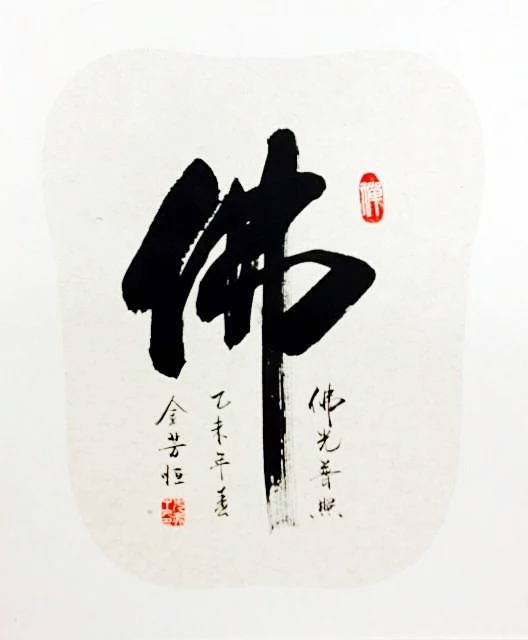 佛
禅
佛光普照
乙未年春
金芳恒